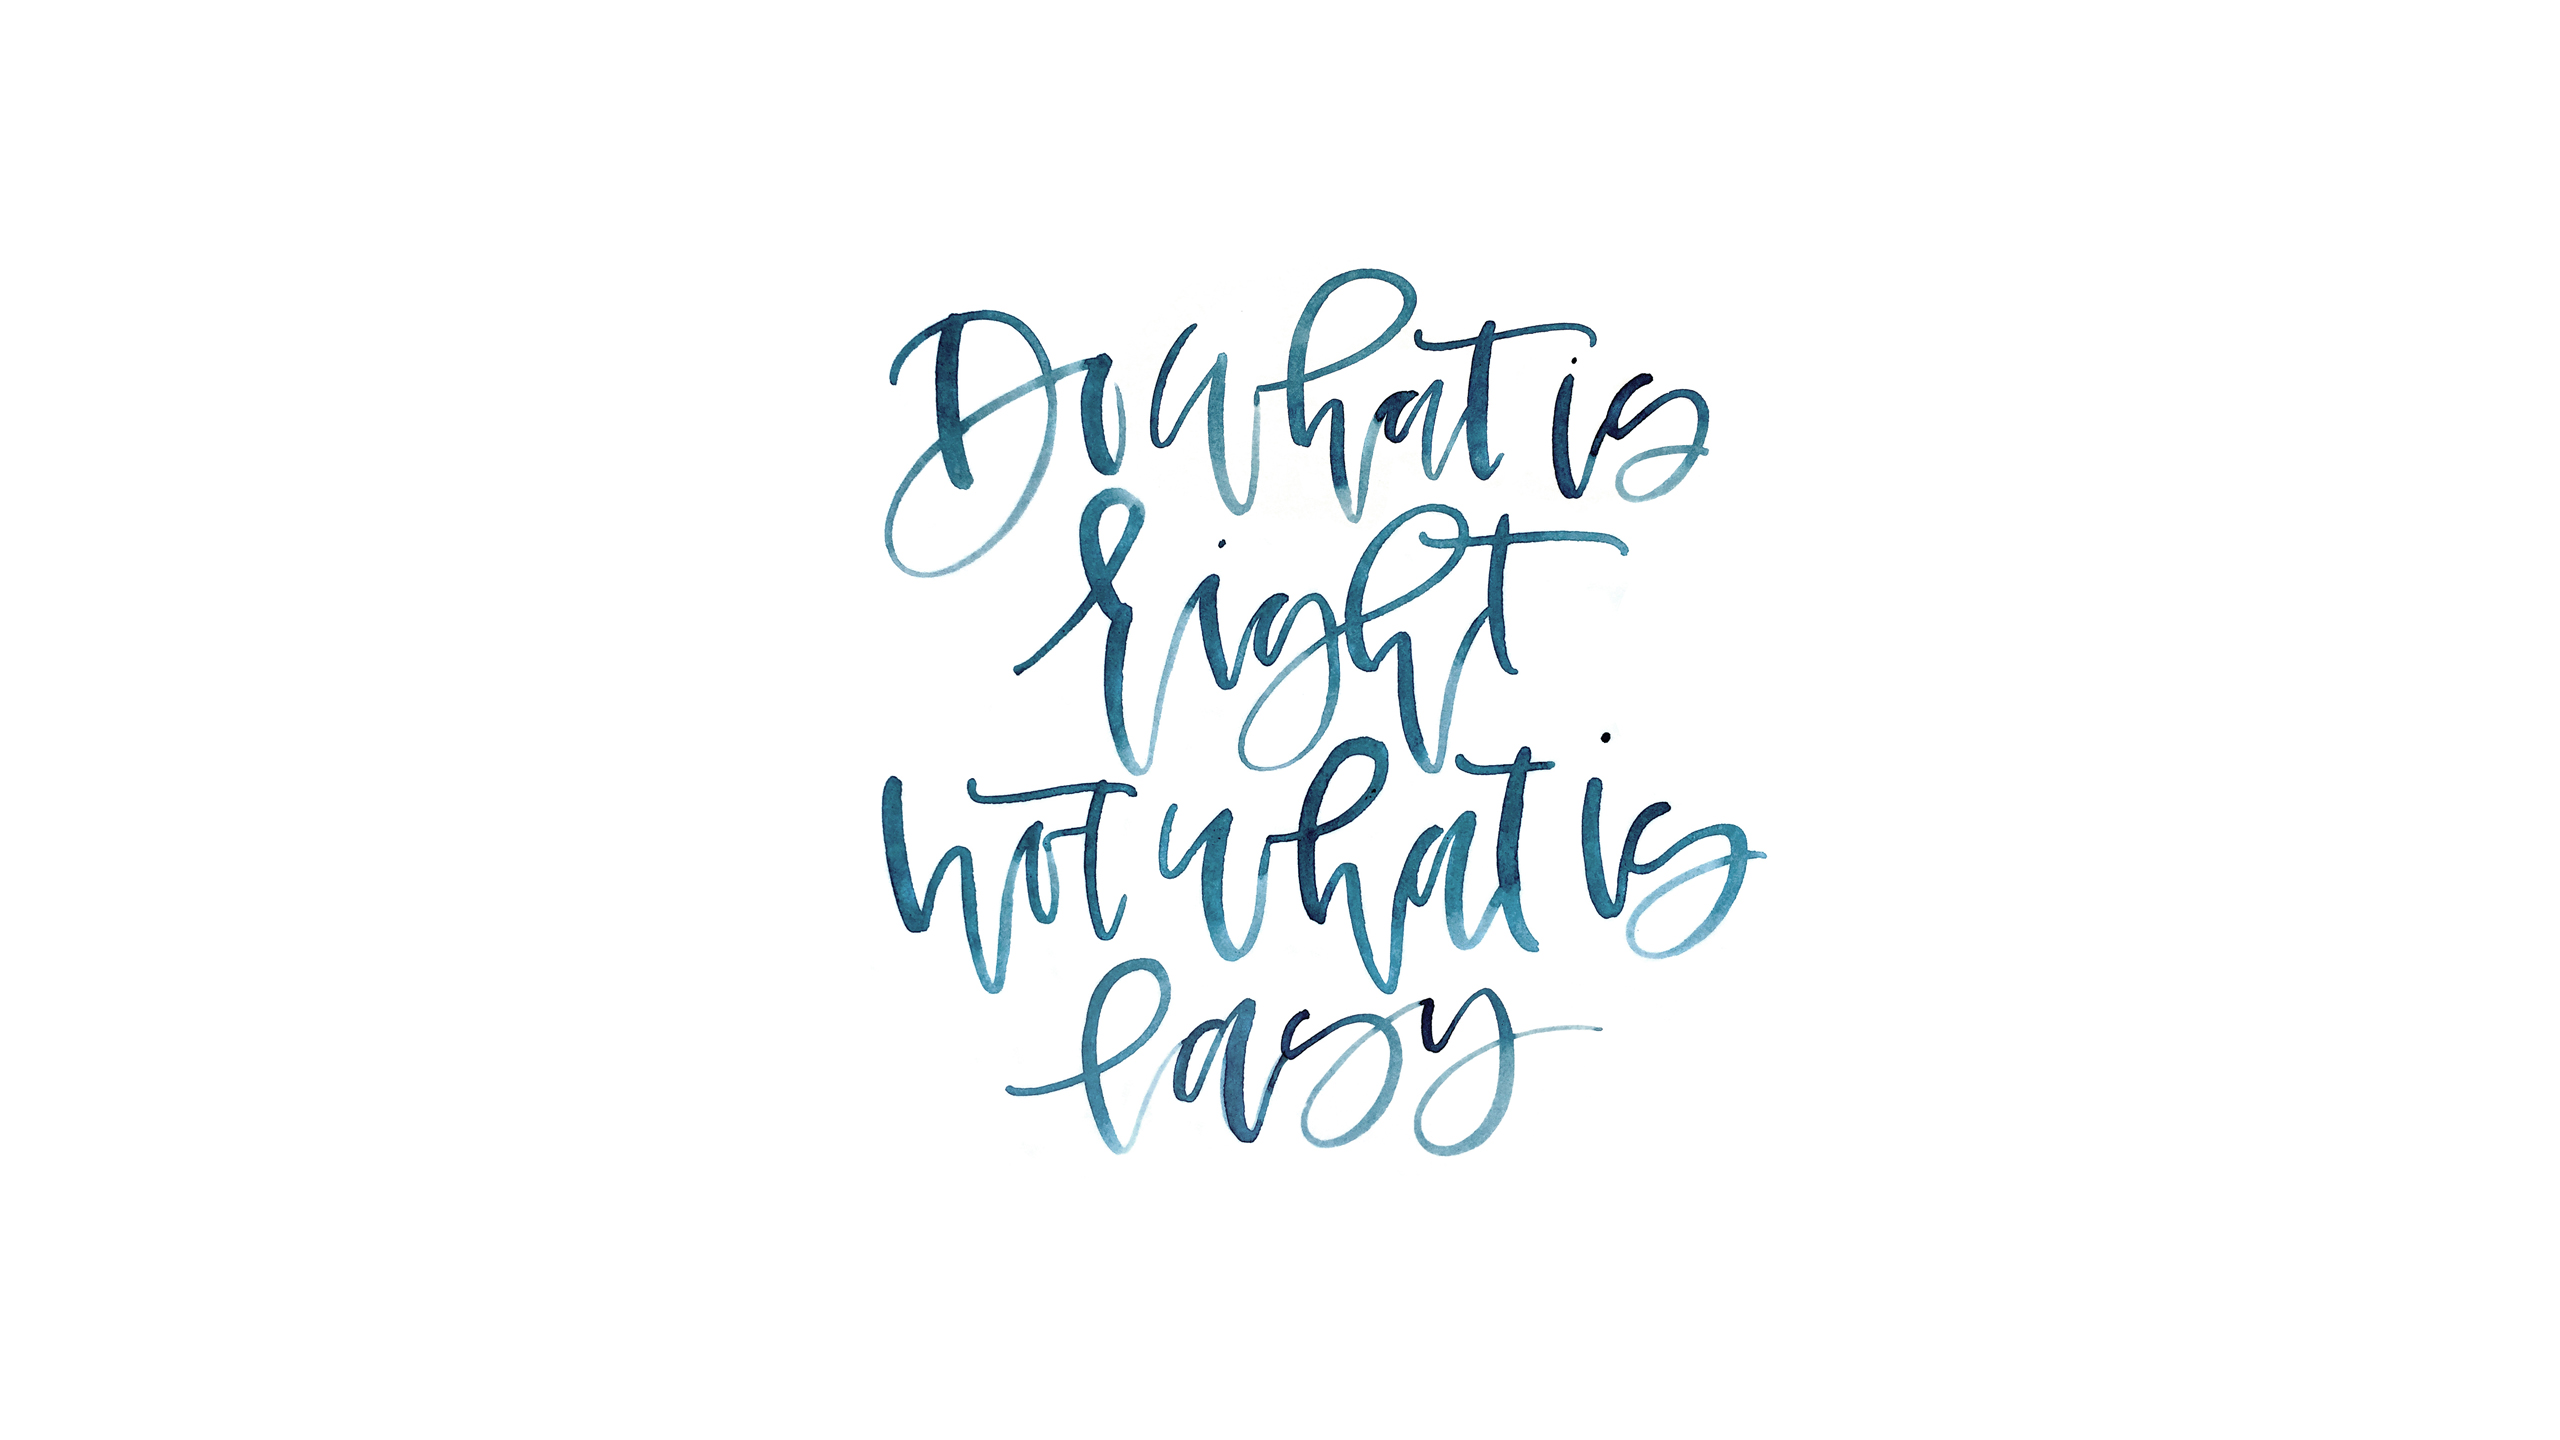 Do what is
right
not what is
easy